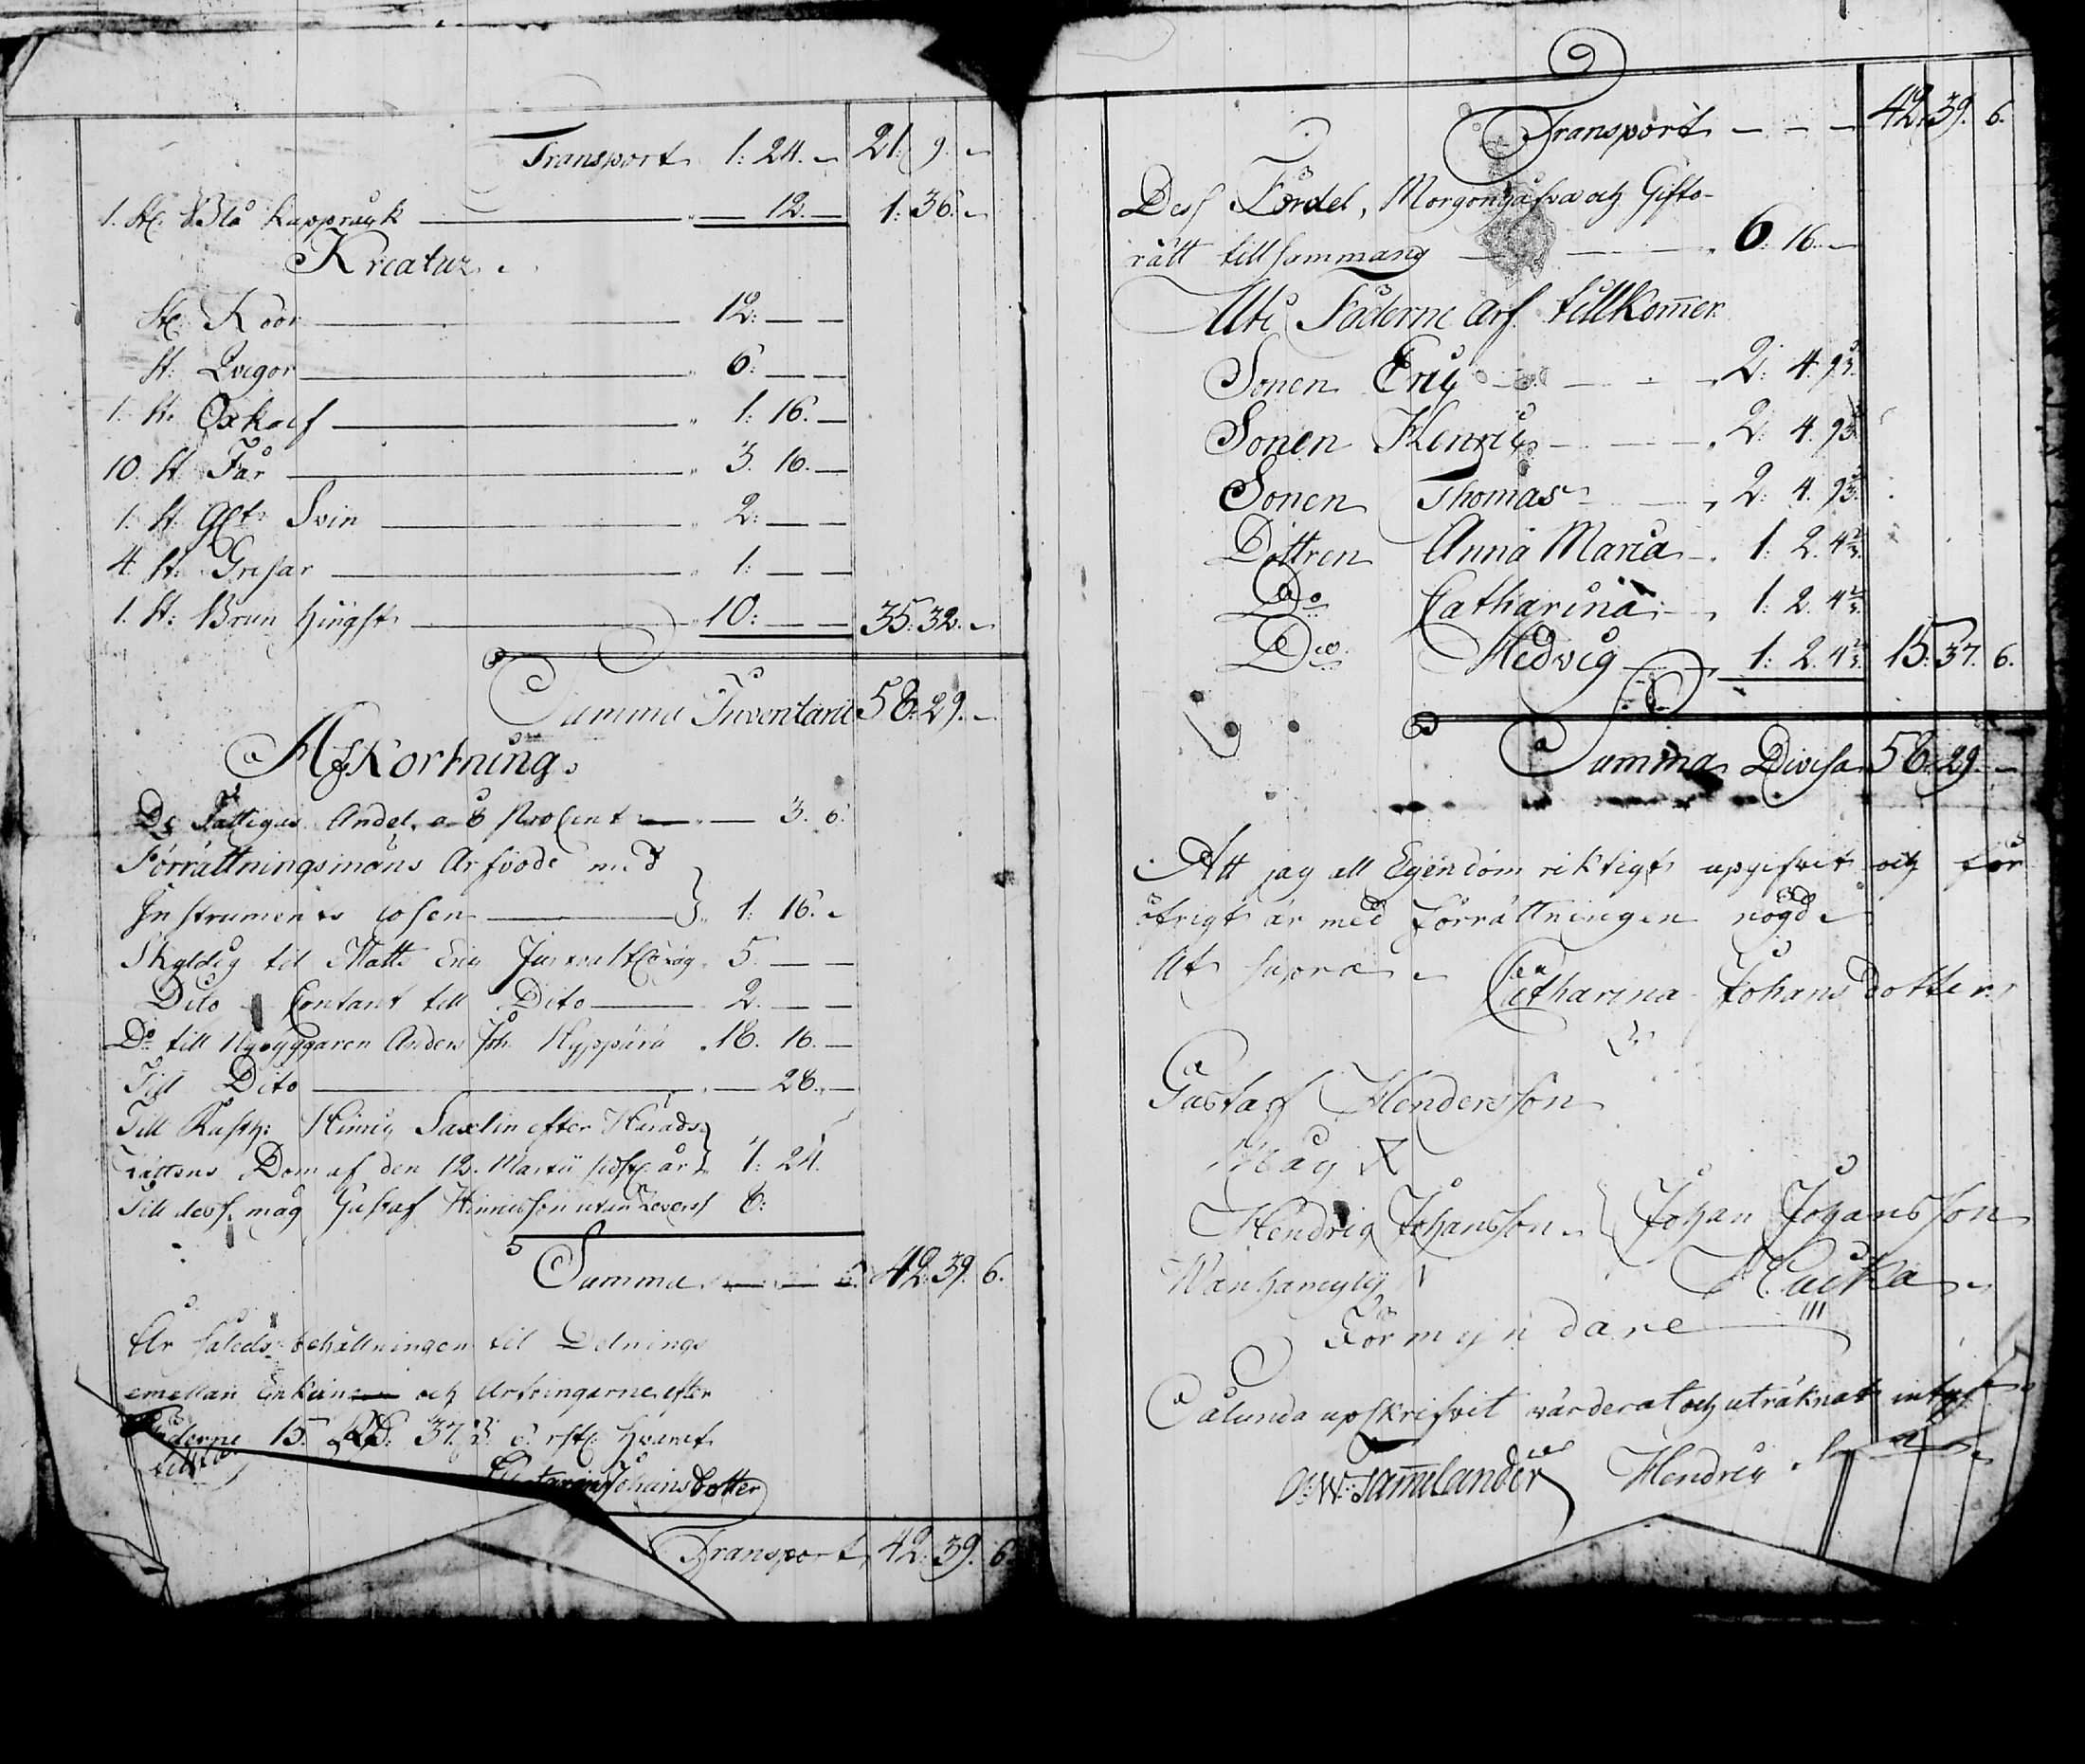 Transport 1: 24. 21: 9.
1. st. Blå kappråck 12. 1: 36.
Kreatur
st. Koor 12:
st: Qvigor 6:
1. st. Oxkalf 1: 16.
10. st. Får 3. 16.
1. st. Svin 2:
4. st: Grisar 1:
1. st: Brun Hingst 10: 35: 32.
Summa Inventarii 58: 29.
Afkortning
De Fattigas Andel 3. 6.
Förrättningsmäns Arfvode med
Instruments lösen 1: 16.
Skyldig til Matts Eric 5.
Dito Contant till Dito 2.
Do till Nybyggaren Anders Joh. Hyppärä 18. 16.
Till Dito 28.
Till Hinric Saxlin efter Härads
Rättens Dom af den 12. Martii sidstl. år 24.
Till dess måg Gustaf Hinricsson utan Revers 8:
Summa 42: 39. 6.
Är således behållningen til Delnings
emellan Enkan och Arfvingarne efter
15. 37. 6 rst. Hvaraf
Johans Dotter
Transport 42: 39. 6
Transport 42: 39. 6.
Dess Fördel, Morgongåfva och Gifto-
rätt tillsammans 6. 16.
Uti Fäderne arf tillkomer
Sonen Eric 2: 4. 9
Sonen Henric 2: 4. 9
Sonen Thomas 2: 4. 9
Dottren Anna Maria 1: 2. 4 2/3.
Do Catharina 1: 2. 4 2/3.
Dio Hedvig 1: 2. 4 2/3. 15: 37. 6.
Summa Divisa 58: 29.
Att jag all Egendom riktigt upgifvit och för
öfrigt är med förrättningen nögd
Ut supra Catharina Johans Dotter
Gustaf Hendersson
Måg
Hendrig Johansson Johan Johansson
Förmyndare
Sålunda upskrifvit värderat och uträknat intyga
O: W: Samelander Hendric